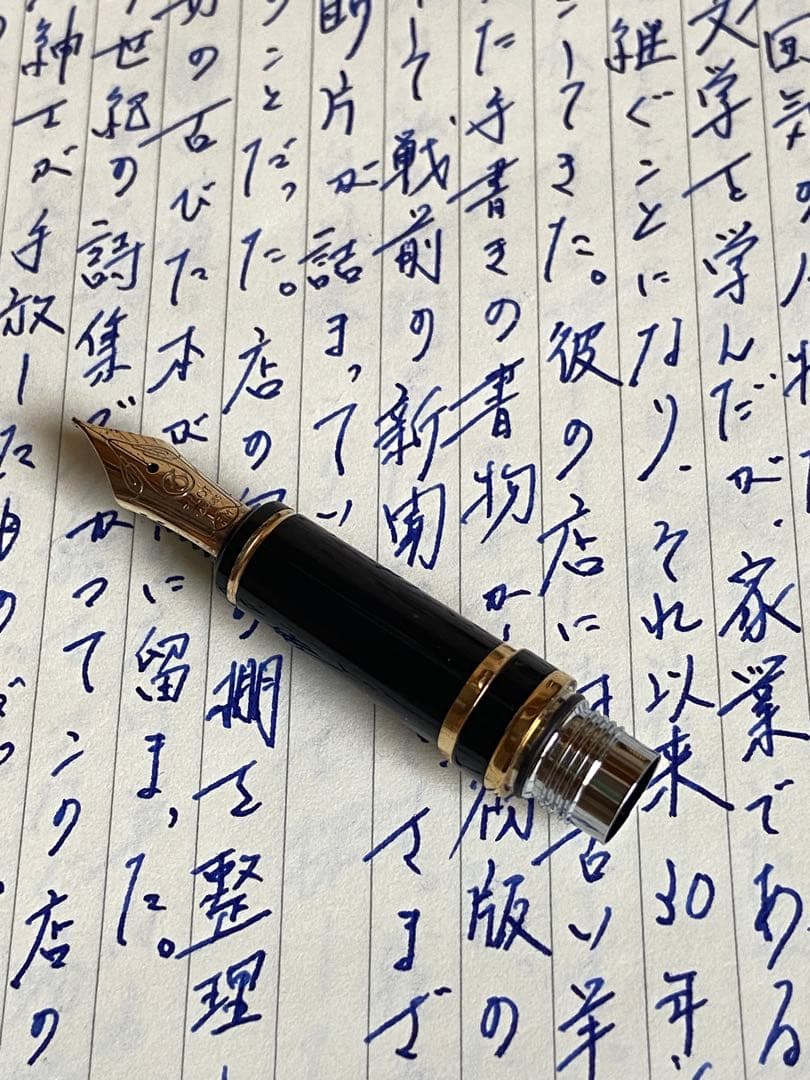 囲気の人物
文学を学んだが、家業である
継ぐことになり、それ以来30年
してきた。彼の店に古い羊
た手書きの書物か版の
して戦前の新聞さまざ
断片が詰まってい
ことだった。店の棚を整理し
の古びた本がに留まった。
世紀の詩集がかつてこの店の
紳士が手放した